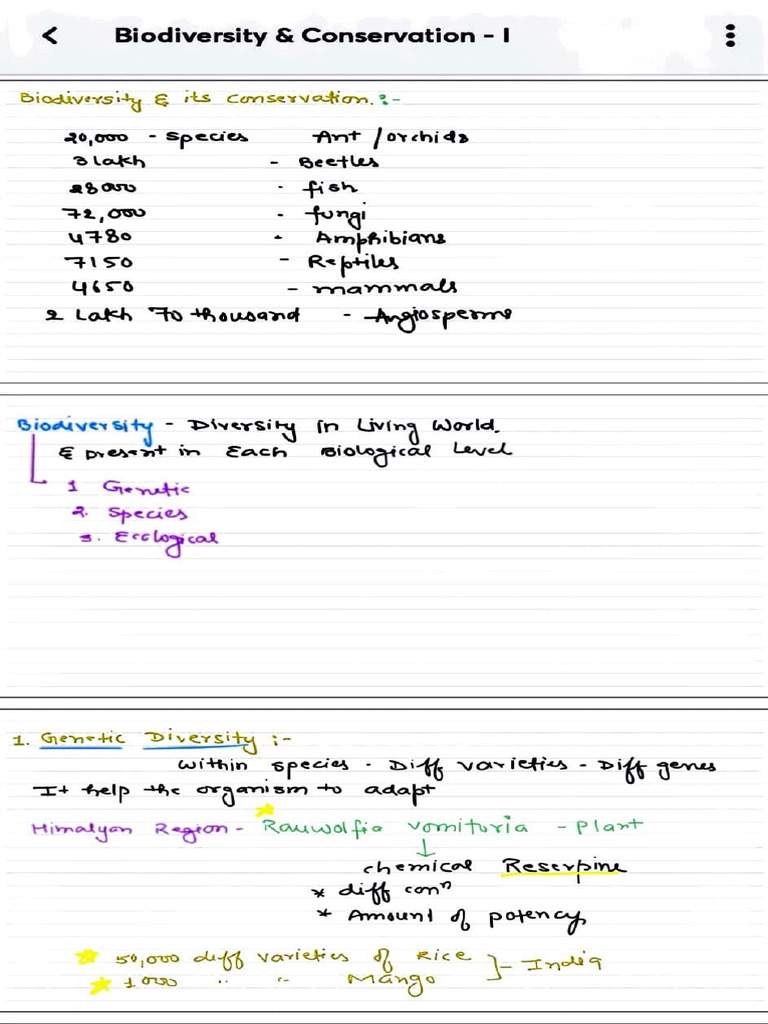 Biodiversity & Conservation - I
Biodiversity & its conservation :-
20,000 - species Ant / orchids
3 lakh - Beetles
28000 - fish
72,000 - fungi
4780 - Amphibians
7150 - Reptiles
4650 - mammals
2 Lakh 70 thousand - Angiosperms
Biodiversity - Diversity in Living World.
& present in Each Biological Level
1 Genetic
2. Species
3. Ecological
1. Genetic Diversity :-
within species - Diff varieties - Diff genes
It help the organism to adapt
Himalyan Region - Rauwolfia vomituria - Plant
↓
chemical Reserpine
* diff conⁿ
* Amount of potency
50,000 diff varieties of Rice
1000 " " Mango ]- India